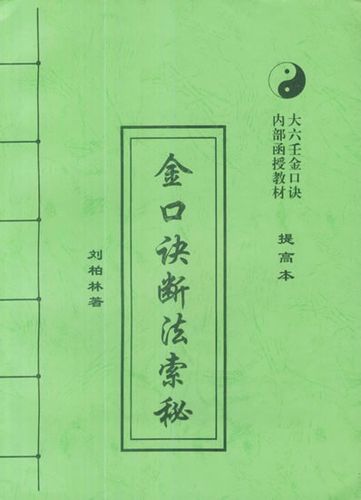 大六壬金口诀
内部函授教材
提高本
金口诀断法索秘
刘柏林著